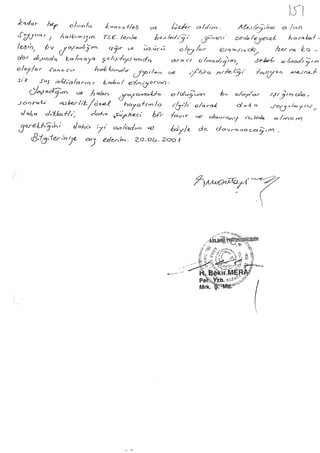 151
kadar hep olumlu kanaatler ve ... aldım. Mesleğime olan
saygımı, halkımızın TSK.lerine beslediği güveni zedeleyecek hareket-
lerin, bu yaşadığım ağır ve üzücü olaylar esnasında, her ne ka-
dar dışında kalmaya çalıştıysamda aracı olmadığım, sebeb olmadığım
olaylar sonucu hakkımda yapılan ve iftira niteliği taşıyan mesnet-
siz suç iddialarını kabul etmiyorum.
Yaşadığım ve halen yaşamakta olduğum bu olaylar ışığında
sonraki askerlik/özel hayatımla ilgili olarak daha sorgulayıcı,
daha dikkatli, daha şüpheci bir tavır ve davranış içinde olmam
gerektiğini daha iyi anladım ve böyle de davranacağım.
Bilgilerinize arz ederim. 20.06.2001
H. Bekir MERA
Per. Yzb.
Mrk. Ş. Md.